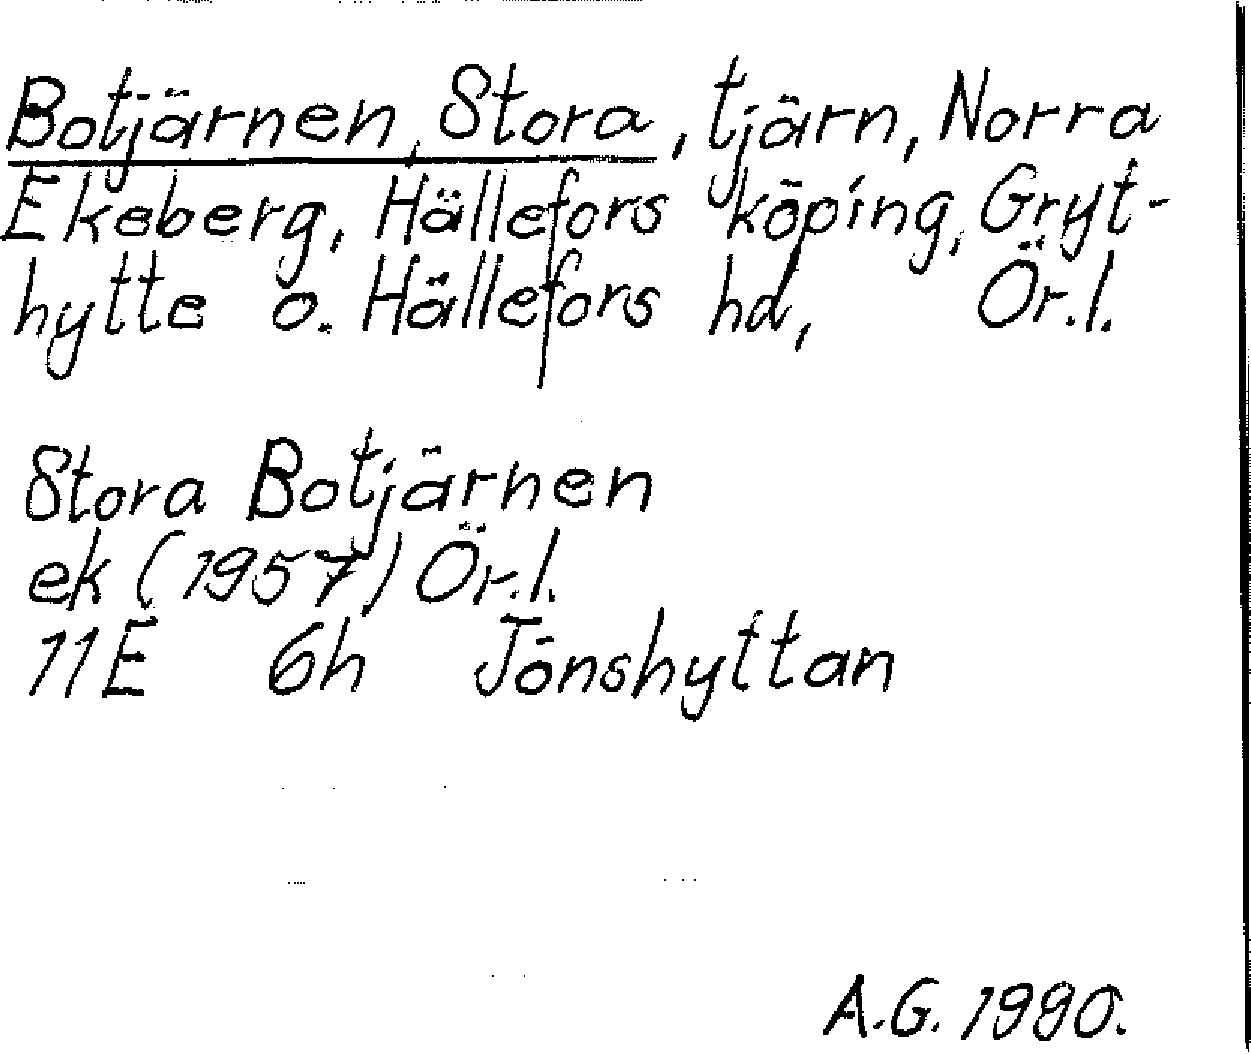 Botjärnen, Stora, tjärn, Norra
Ekeberg, Hällefors köping, Gryt-
hytte o. Hällefors hd, Ör.l.
Stora Botjärnen
ek (1957) Ör.l.
11E 6h Jönshyttan
A.G. 1980.